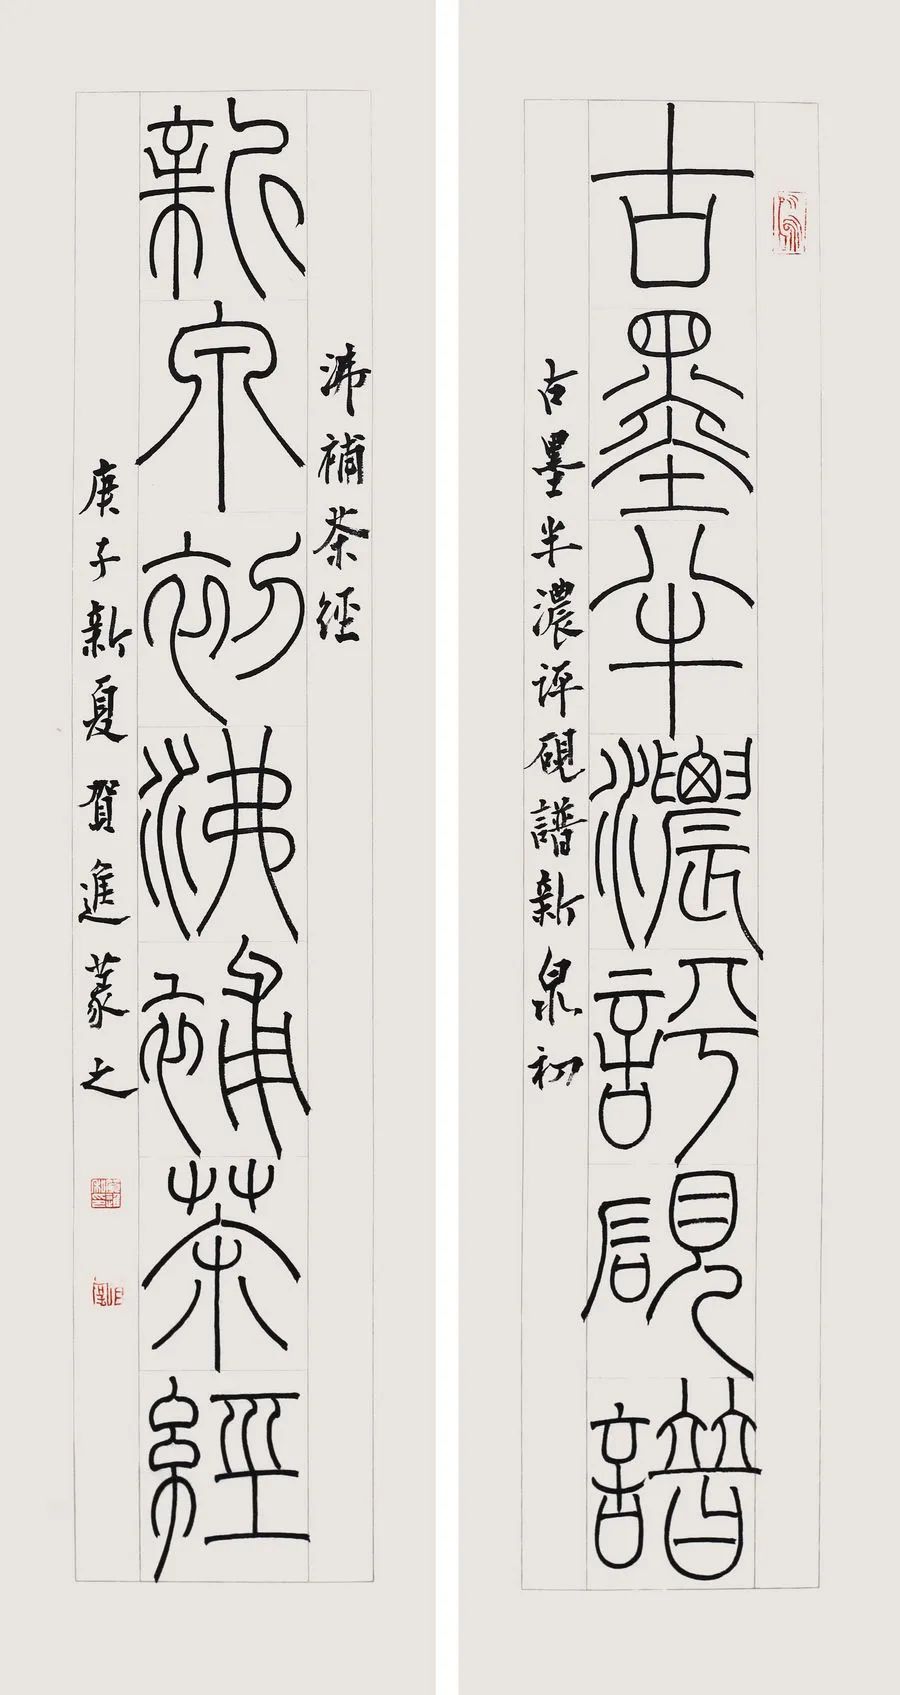 古墨半濃評硯譜
古墨半濃評硯譜新泉初
沸補茶經
新泉初沸補茶經
庚子新夏賀進篆之